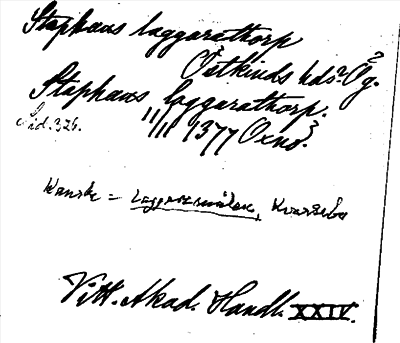 Staphans laggarathorp
Östkinds hds? Ög.
Staphans laggarathorp.
Sid. 326.
11/11 1377 Oxnö?
Kanske = Laggaresmålen, Kvarsebo
Vitt. Akad. Handl. XXIV.